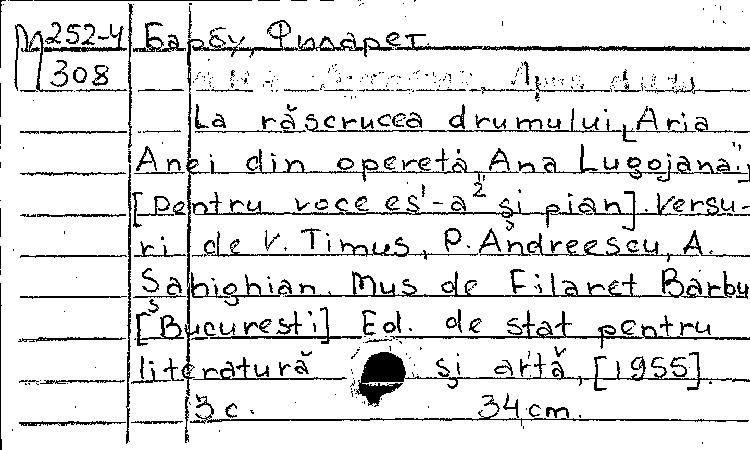 М252-4 Барбу, Филарет.
308
La răscrucea drumului, [Aria
Anei din operetá „Ana Lugojana".]
[Pentru voce es¹-a² şi pian]. Versu-
ri de V. Timus, P. Andreescu, A.
Sahighian. Mus de Filaret Barbu
[Bucureşti] Ed. de stat pentru
literatură şi artă, [1955].
3 c. 34 cm.